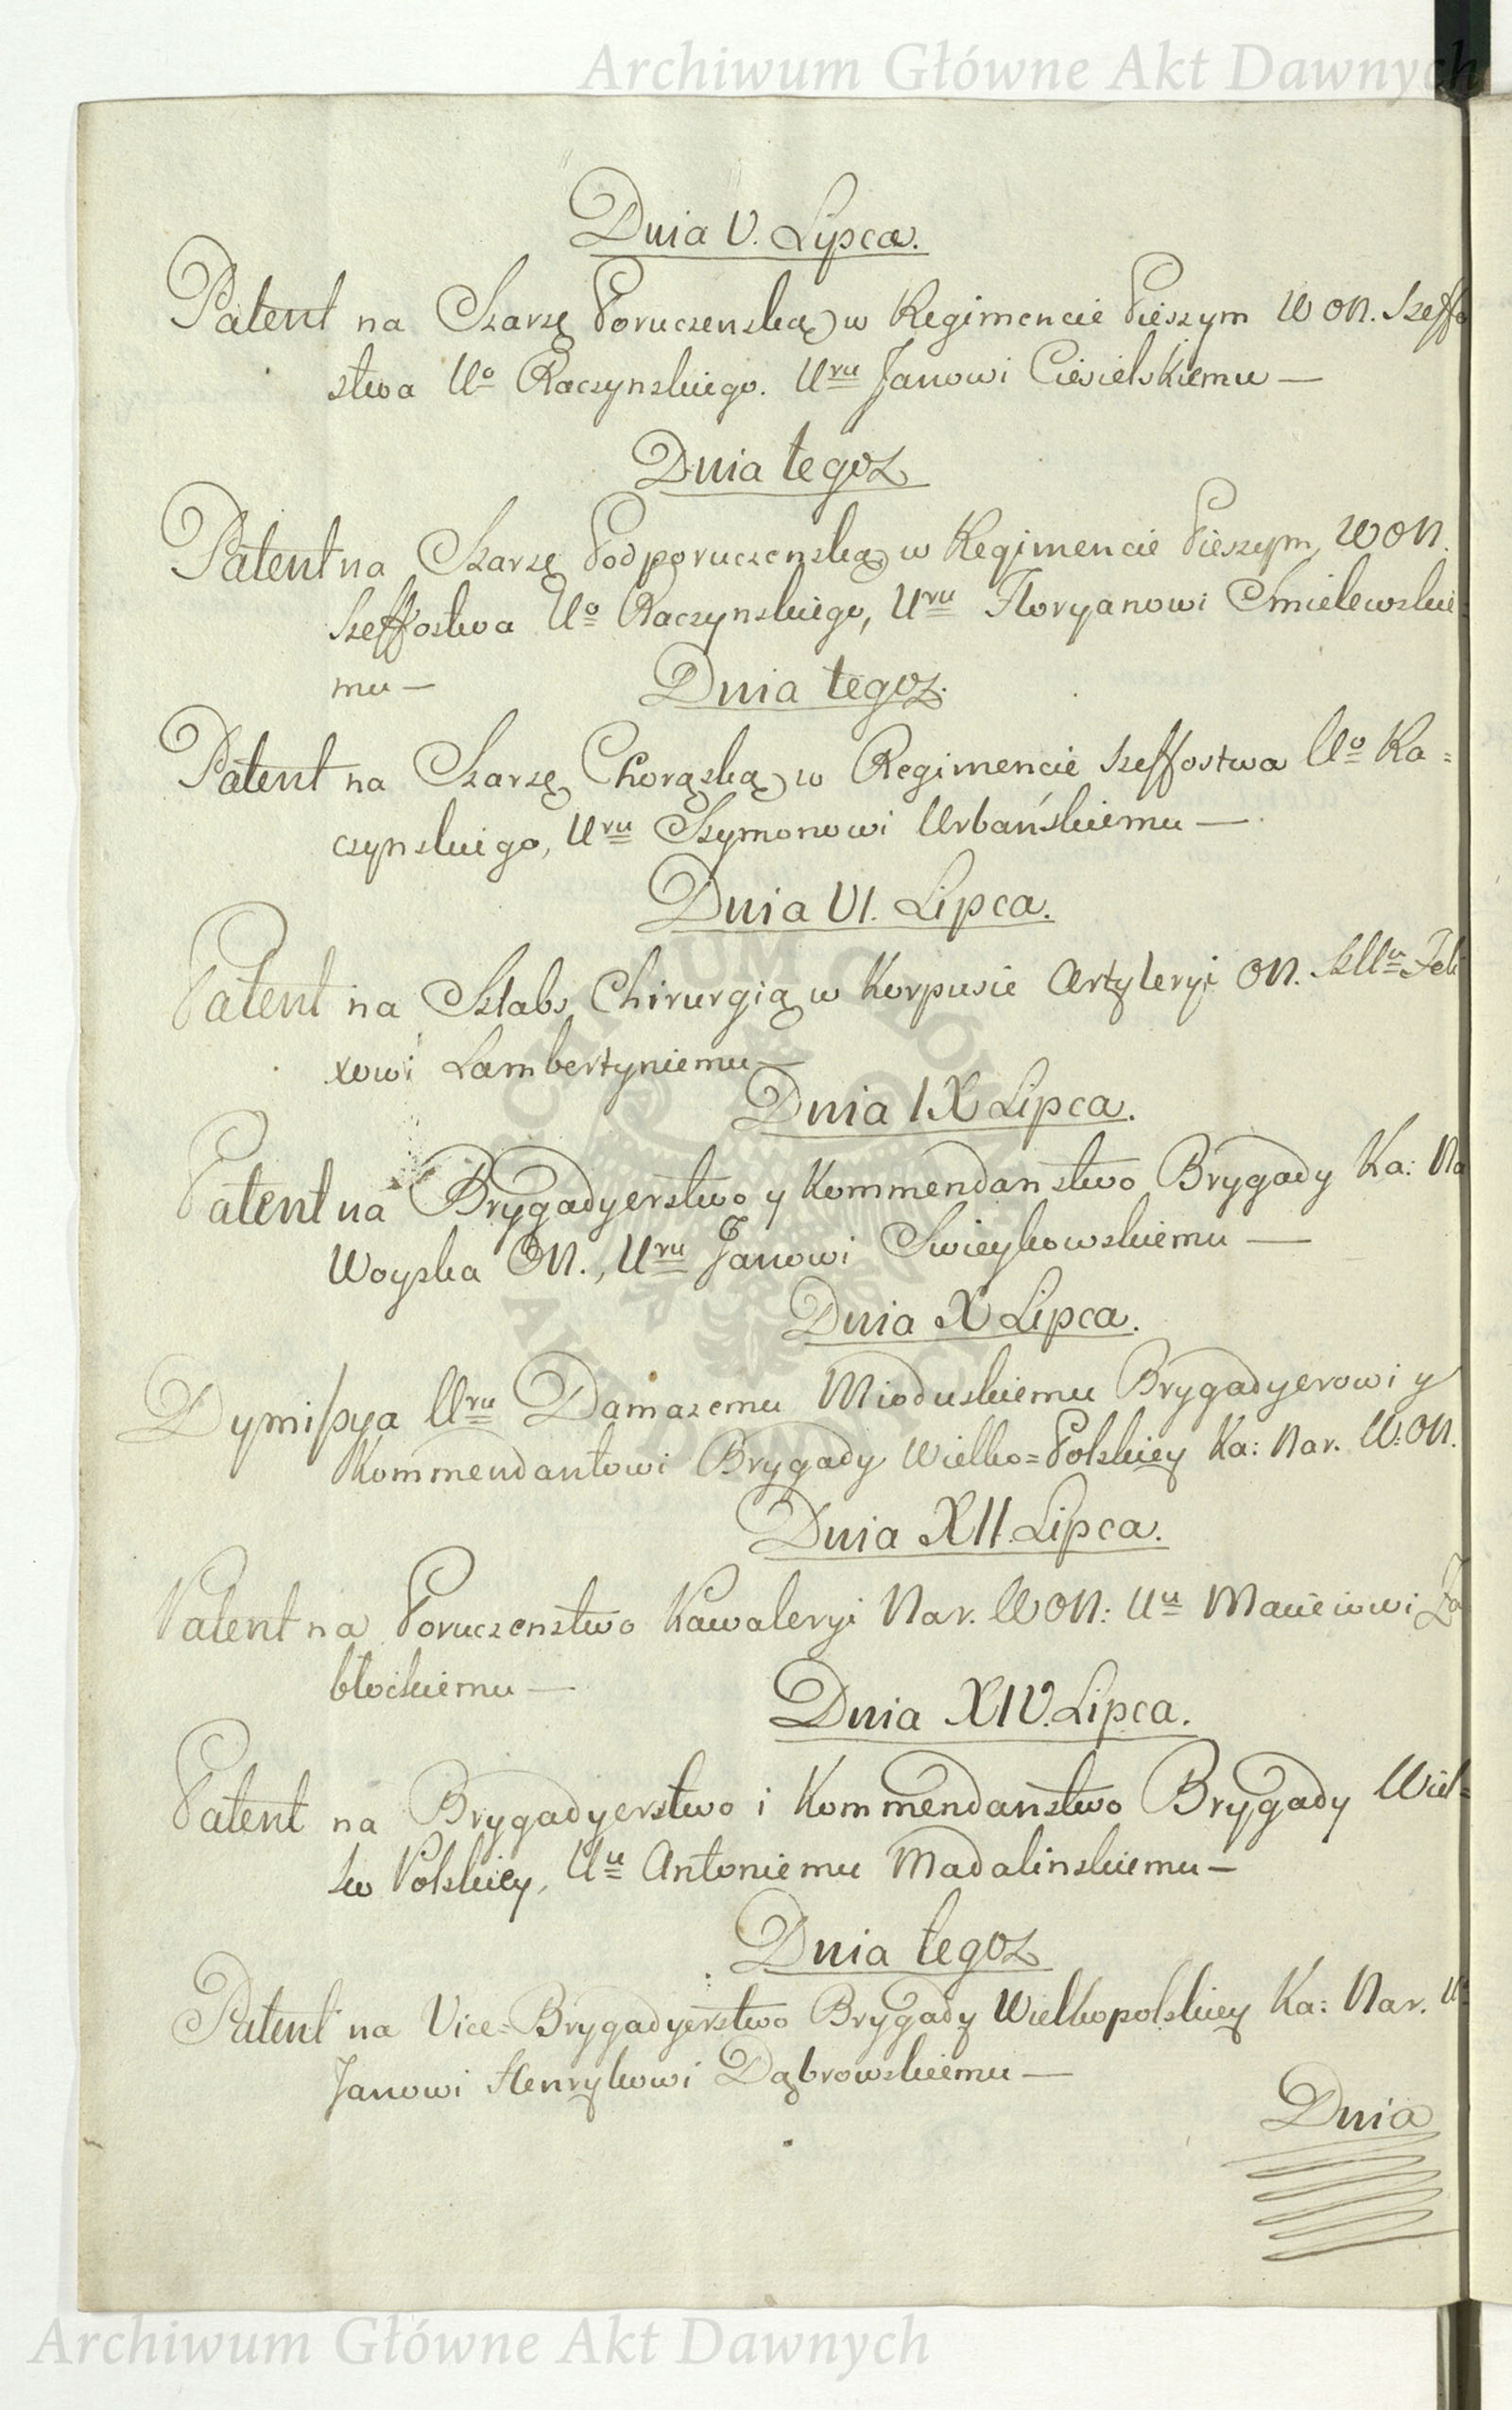 Archiwum Główne Akt Dawnych
Dnia V. Lipca.
Patent na Szarzę Poruczenską w Regimencie Pieszym WON. Szeffo
stwa Uo Raczynskiego. Uru Janowi Ciesielskiemu —
Dnia tegoz
Patent na Szarzę Podporuczenską w Regimencie Pieszym WON.
Szeffostwa Uo Raczynskiego, Uru Floryanowi Cmielewskie
mu — Dnia tegoz.
Patent na Szarzę Chorąską w Regimencie Szeffostwa Uo Ra=
czynskiego, Uru Szymonowi Urbańskiemu —
Dnia VI. Lipca.
Patent na Sztabs Chirurgią w Korpusie Artyleryi ON. Feli
xowi Lambertyniemu —
Dnia IX Lipca.
Patent na Brygadyerstwo y Kommendanstwo Brygady Ka: Na
Woyska ON., Uru Janowi Swieykowskiemu —
Dnia X Lipca.
Dymissya Uru Damazemu Mioduskiemu Brygadyerowi y
Kommendantowi Brygady Wielko=Polskiey Ka: Nar. W.ON.
Dnia XII. Lipca.
Patent na Poruczenstwo Kawaleryi Nar. WON: Uu Macieiowi Za
błockiemu —
Dnia XIV. Lipca.
Patent na Brygadyerstwo i Kommendanstwo Brygady Wiel=
ko Polskiey, Uu Antoniemu Madalinskiemu —
Dnia tegoz
Patent na Vice=Brygadyerstwo Brygady Wielkopolskiey Ka: Nar.
Janowi Henrykowi Dąbrowskiemu —
Dnia
Archiwum Główne Akt Dawnych